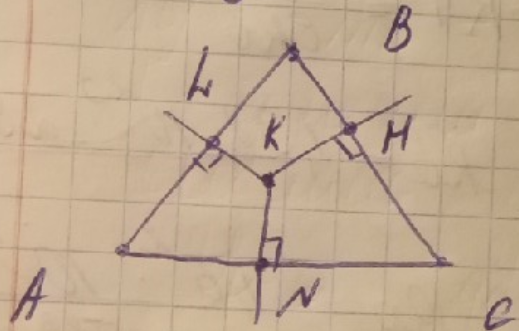 B
L
K
H
A
N
C